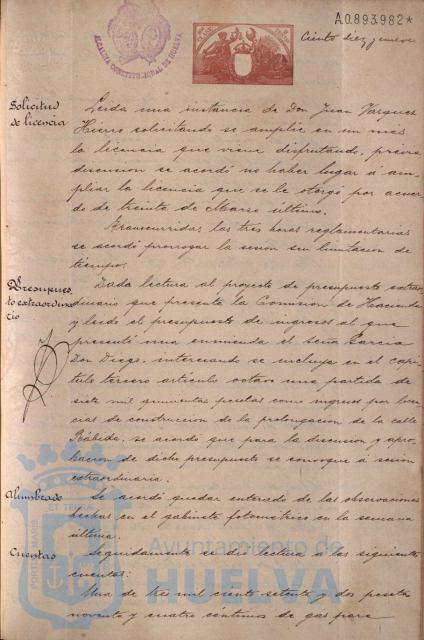 A.0.893.982*
Ciento diez y nueve
ALCALDIA CONSTITUCIONAL DE HUELVA
Solicitud
de licencia
Leida una instancia de Don Juan Vazquez
Hierro solicitando se amplíe en un mes
la licencia que viene disfrutando, previa
discusion se acordó no haber lugar á am-
pliar la licencia que se le otorgó por acuer-
do de treinta de Marzo último.
Transcurridas las tres horas reglamentarias
se acordó prorrogar la sesion sin limitacion de
tiempo.
Presupues-
to extraordina-
rio
Dada lectura al proyecto de presupuesto extraor-
dinario que presenta la Comision de Hacienda
y leido el presupuesto de ingresos al que
presentó una enmienda el Señor Garcia
Don Diego, interesando se incluya en el capi-
tulo tercero articulo octavo una partida de
siete mil quinientas pesetas como ingresos por licen-
cias de construccion de la prolongacion de la calle
Rábida, se acordó que para la discusion y apro-
bacion de dicho presupuesto se convoque á sesion
extraordinaria.
Alumbrado
Se acordó quedar enterado de las observaciones
hechas en el gabinete fotométrico en la semana
última.
Cuentas
Seguidamente se dió lectura á las siguientes
cuentas:
Una de tres mil ciento setenta y dos pesetas
noventa y cuatro céntimos de gas para
PORTUS MARIS ET TERRAE
Ayuntamiento de
HUELVA